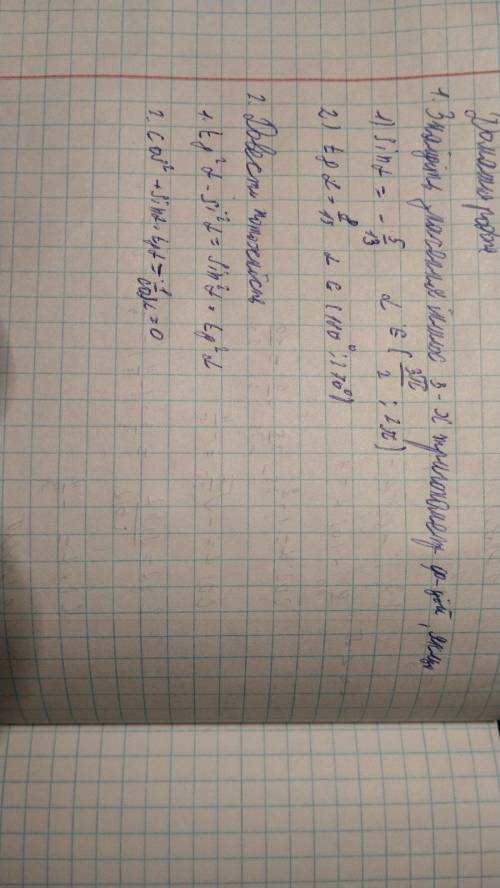 Домашня робота
1. Знайдіть значення інших 3-х тригонометр ф-цій, якщо
1) sin α = - 5/13 α ∈ (3π/2 ; 2π)
2) tg α = 8/15 α ∈ (180°; 270°)
2. Довести тотожність
1. tg² α - si² α = sin² α · tg² α
2. cos² + sin α · tg α = 1/cos α = 0